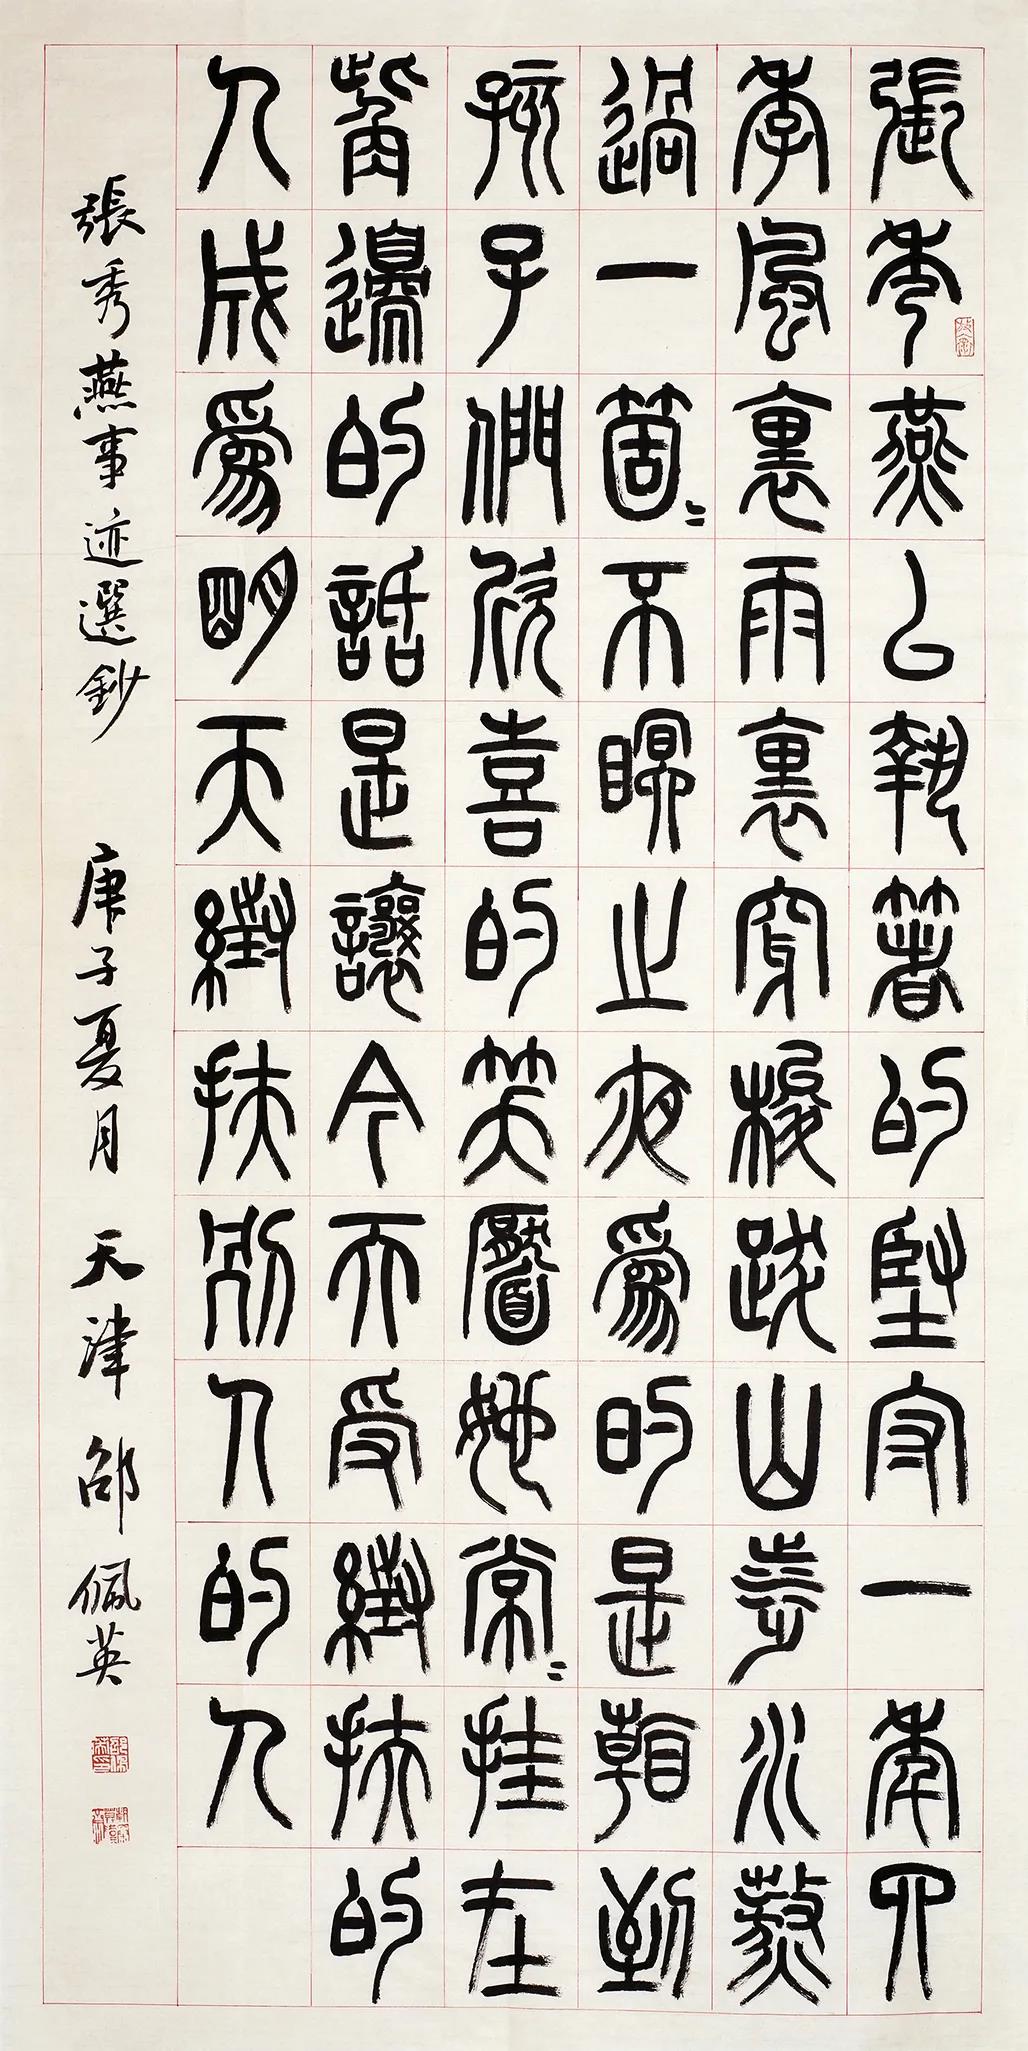 張秀燕以執著的堅守一年四
季風裏雨裏穿梭跋山涉水熬
過一箇〻不眠之夜爲的是看到
孩子們欣喜的笑靨她常〻挂在
嘴邊的話是讓今天受幫扶的
人成爲明天幫扶別人的人
張秀燕事迹選鈔 庚子夏月 天津邵佩英